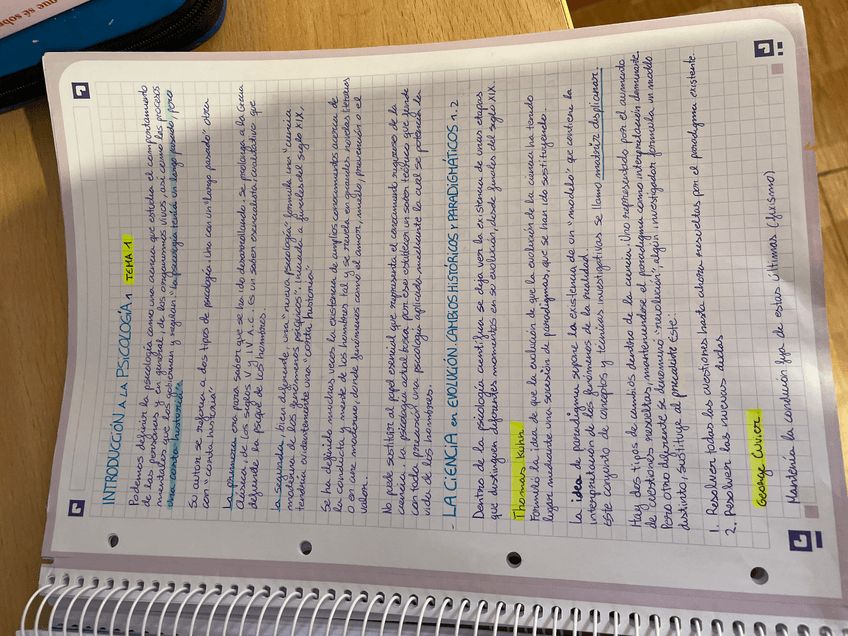 que sé sobre
INTRODUCCIÓN A LA PSICOLOGÍA 1 TEMA 1
Podemos definir la psicología como una ciencia que estudia el comportamiento
de las personas y en general, de los organismos vivos, así como los procesos
mentales que los gobiernan y regulan "la psicología tendrá un largo pasado, pero
una corta historia"
Su autor se refería a dos tipos de psicología. Una con un "largo pasado" otra
con "corta historia"
La primera era para saber que se ha ido desarrollando, se prolonga a la Grecia
clásica, de los siglos V y IV A.C. Es un saber esencialista/cualitativo que
defiende la psique de los hombres.
La segunda, bien diferente, una "nueva psicología" formula una "ciencia
moderna de los fenómenos psíquicos". Iniciada a finales del siglo XIX,
tendría evidentemente una "corta historia"
Se ha definido muchas veces la existencia de amplios conocimientos acerca de
la conducta y mente de los hombres tal y se revela en grandes novelas literarias
o en cine moderno, donde fenómenos como el amor, miedo, prevención o el
valor.
No puede sustituir al papel esencial que representa el conocimiento riguroso de la
ciencia. La psicología actual busca por eso establecer un saber teórico que funde
con toda precisión una psicología aplicada, mediante la cual se potencie la
vida de los hombres.
- LA CIENCIA en EVOLUCIÓN. CAMBIOS HISTÓRICOS Y PARADIGMÁTICOS 1.2
Dentro de la psicología científica se deja ver la existencia de unas etapas
que distinguen diferentes momentos en su evolución, desde finales del siglo XIX.
Thomas Kuhn
Formuló la idea de que la evolución de que la evolución de la ciencia ha tenido
lugar mediante una sucesión de paradigmas, que se han ido sustituyendo.
La idea de paradigma supone la existencia de un "modelo" que contiene la
interpretación de los fenómenos de la realidad.
Este conjunto de conceptos y técnicas investigativas se llama matriz displinar.
Hay dos tipos de cambios dentro de la ciencia. Uno representado por el aumento
de cuestiones resueltas, manteniendose el paradigma como interpretación dominante.
Pero otro diferente se denominó "revolución", algún investigador formula un modelo
distinto, sustituye al precedente Este:
1. Resolver todas las cuestiones hasta ahora resueltas por el paradigma existente.
2. Resolver las nuevas dudas
George Cuvier
Mantenía la condición fija de estas últimas (fixismo)